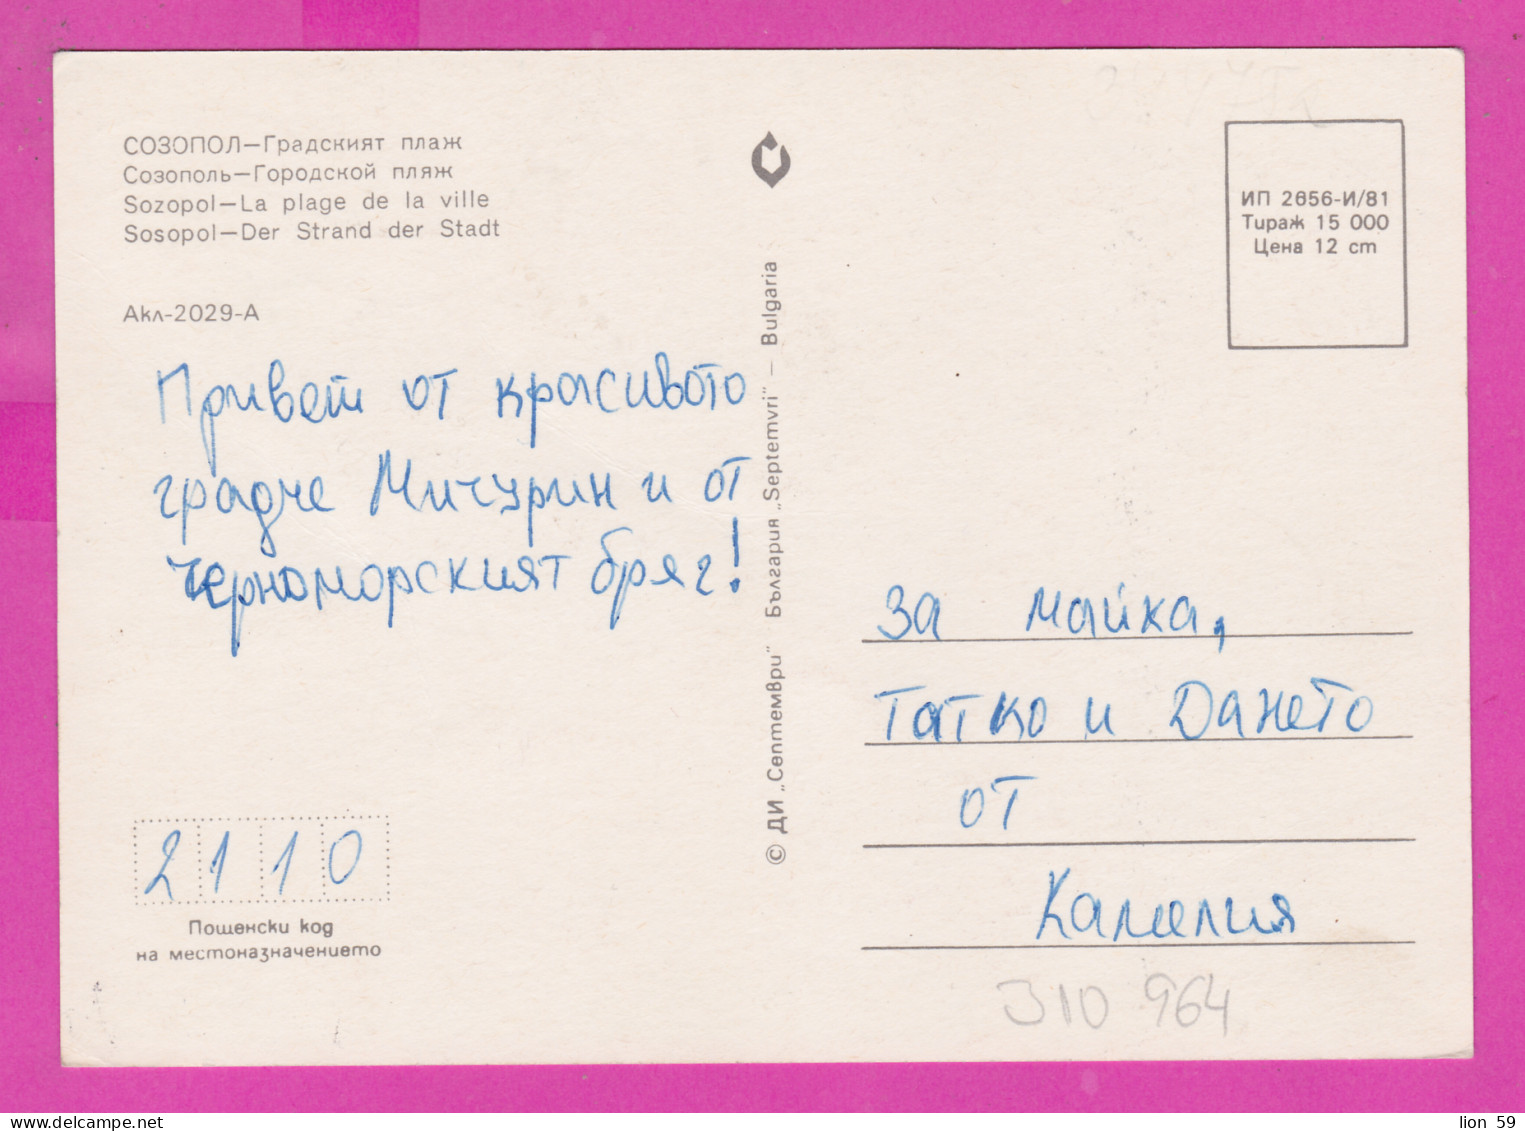 СОЗОПОЛ—Градският плаж
Созополь—Городской пляж
Sozopol—La plage de la ville
Sosopol—Der Strand der Stadt
Акл-2029-А
Привет от красивото
градче Мичурин и от
Черноморският бряг!
2110
Пощенски код
на местоназначението
© ДИ „Септември" България „Septemvri" — Bulgaria
ИП 2656-И/81
Тираж 15 000
Цена 12 ст
За майка,
Татко и Дането
от
Камелия
310 964
lion 59